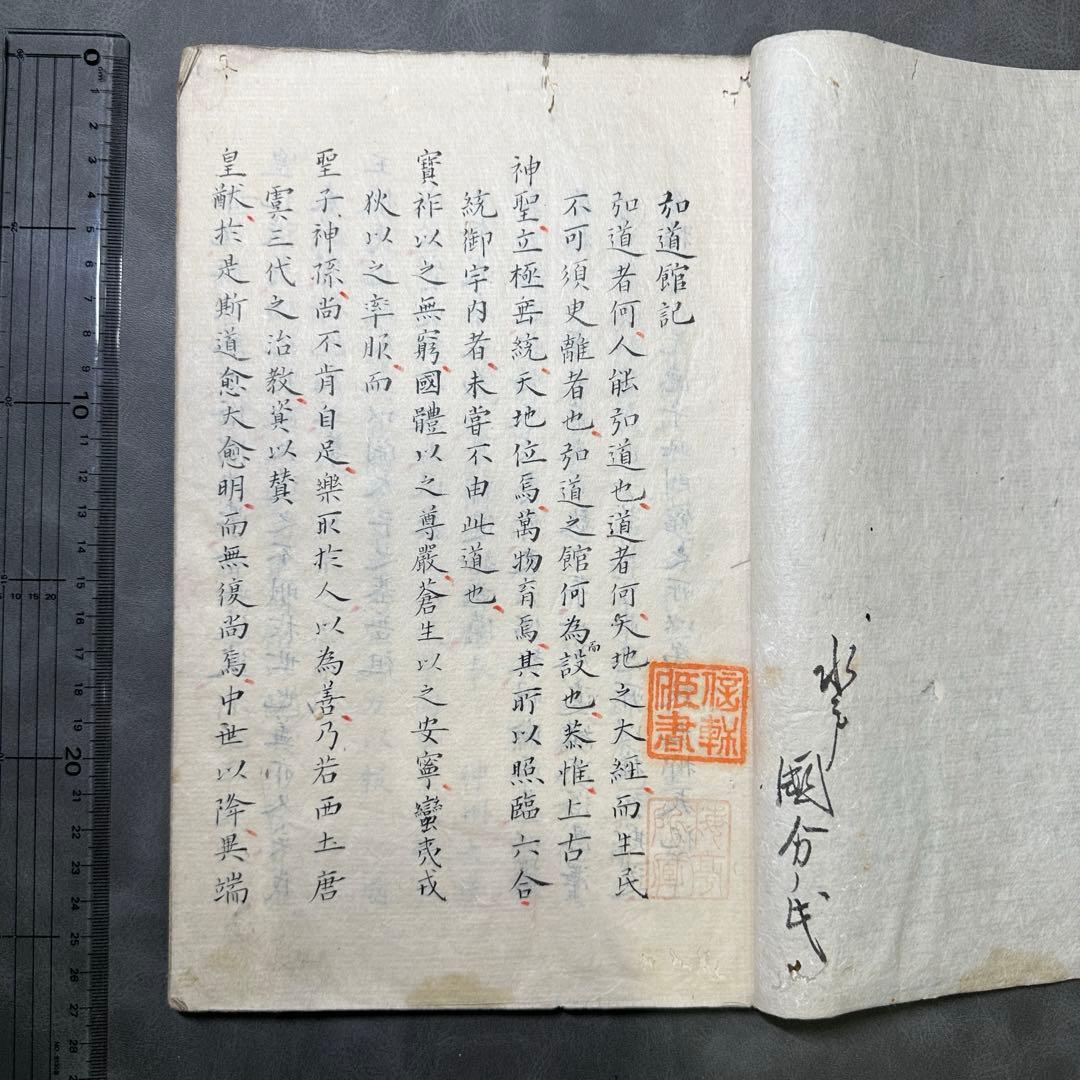 國分氏
弘道館記
弘道者何、人能弘道也、道者何、天地之大經、而生民
不可須臾離者也、弘道之館何為而設也、恭惟、上古
神聖、立極垂統、天地位焉、萬物育焉、其所以照臨六合、
統御宇内者、未嘗不由此道也、
寶祚以之無窮、國體以之尊嚴、蒼生以之安寧、蠻夷戎
狄以之率服、而
聖子、神孫、尚不肯自足、樂取於人、以為善、乃若西土唐
虞三代之治教、資以贊
皇猷、於是斯道愈大愈明、而無復尚焉、中世以降、異端、
0
10
20